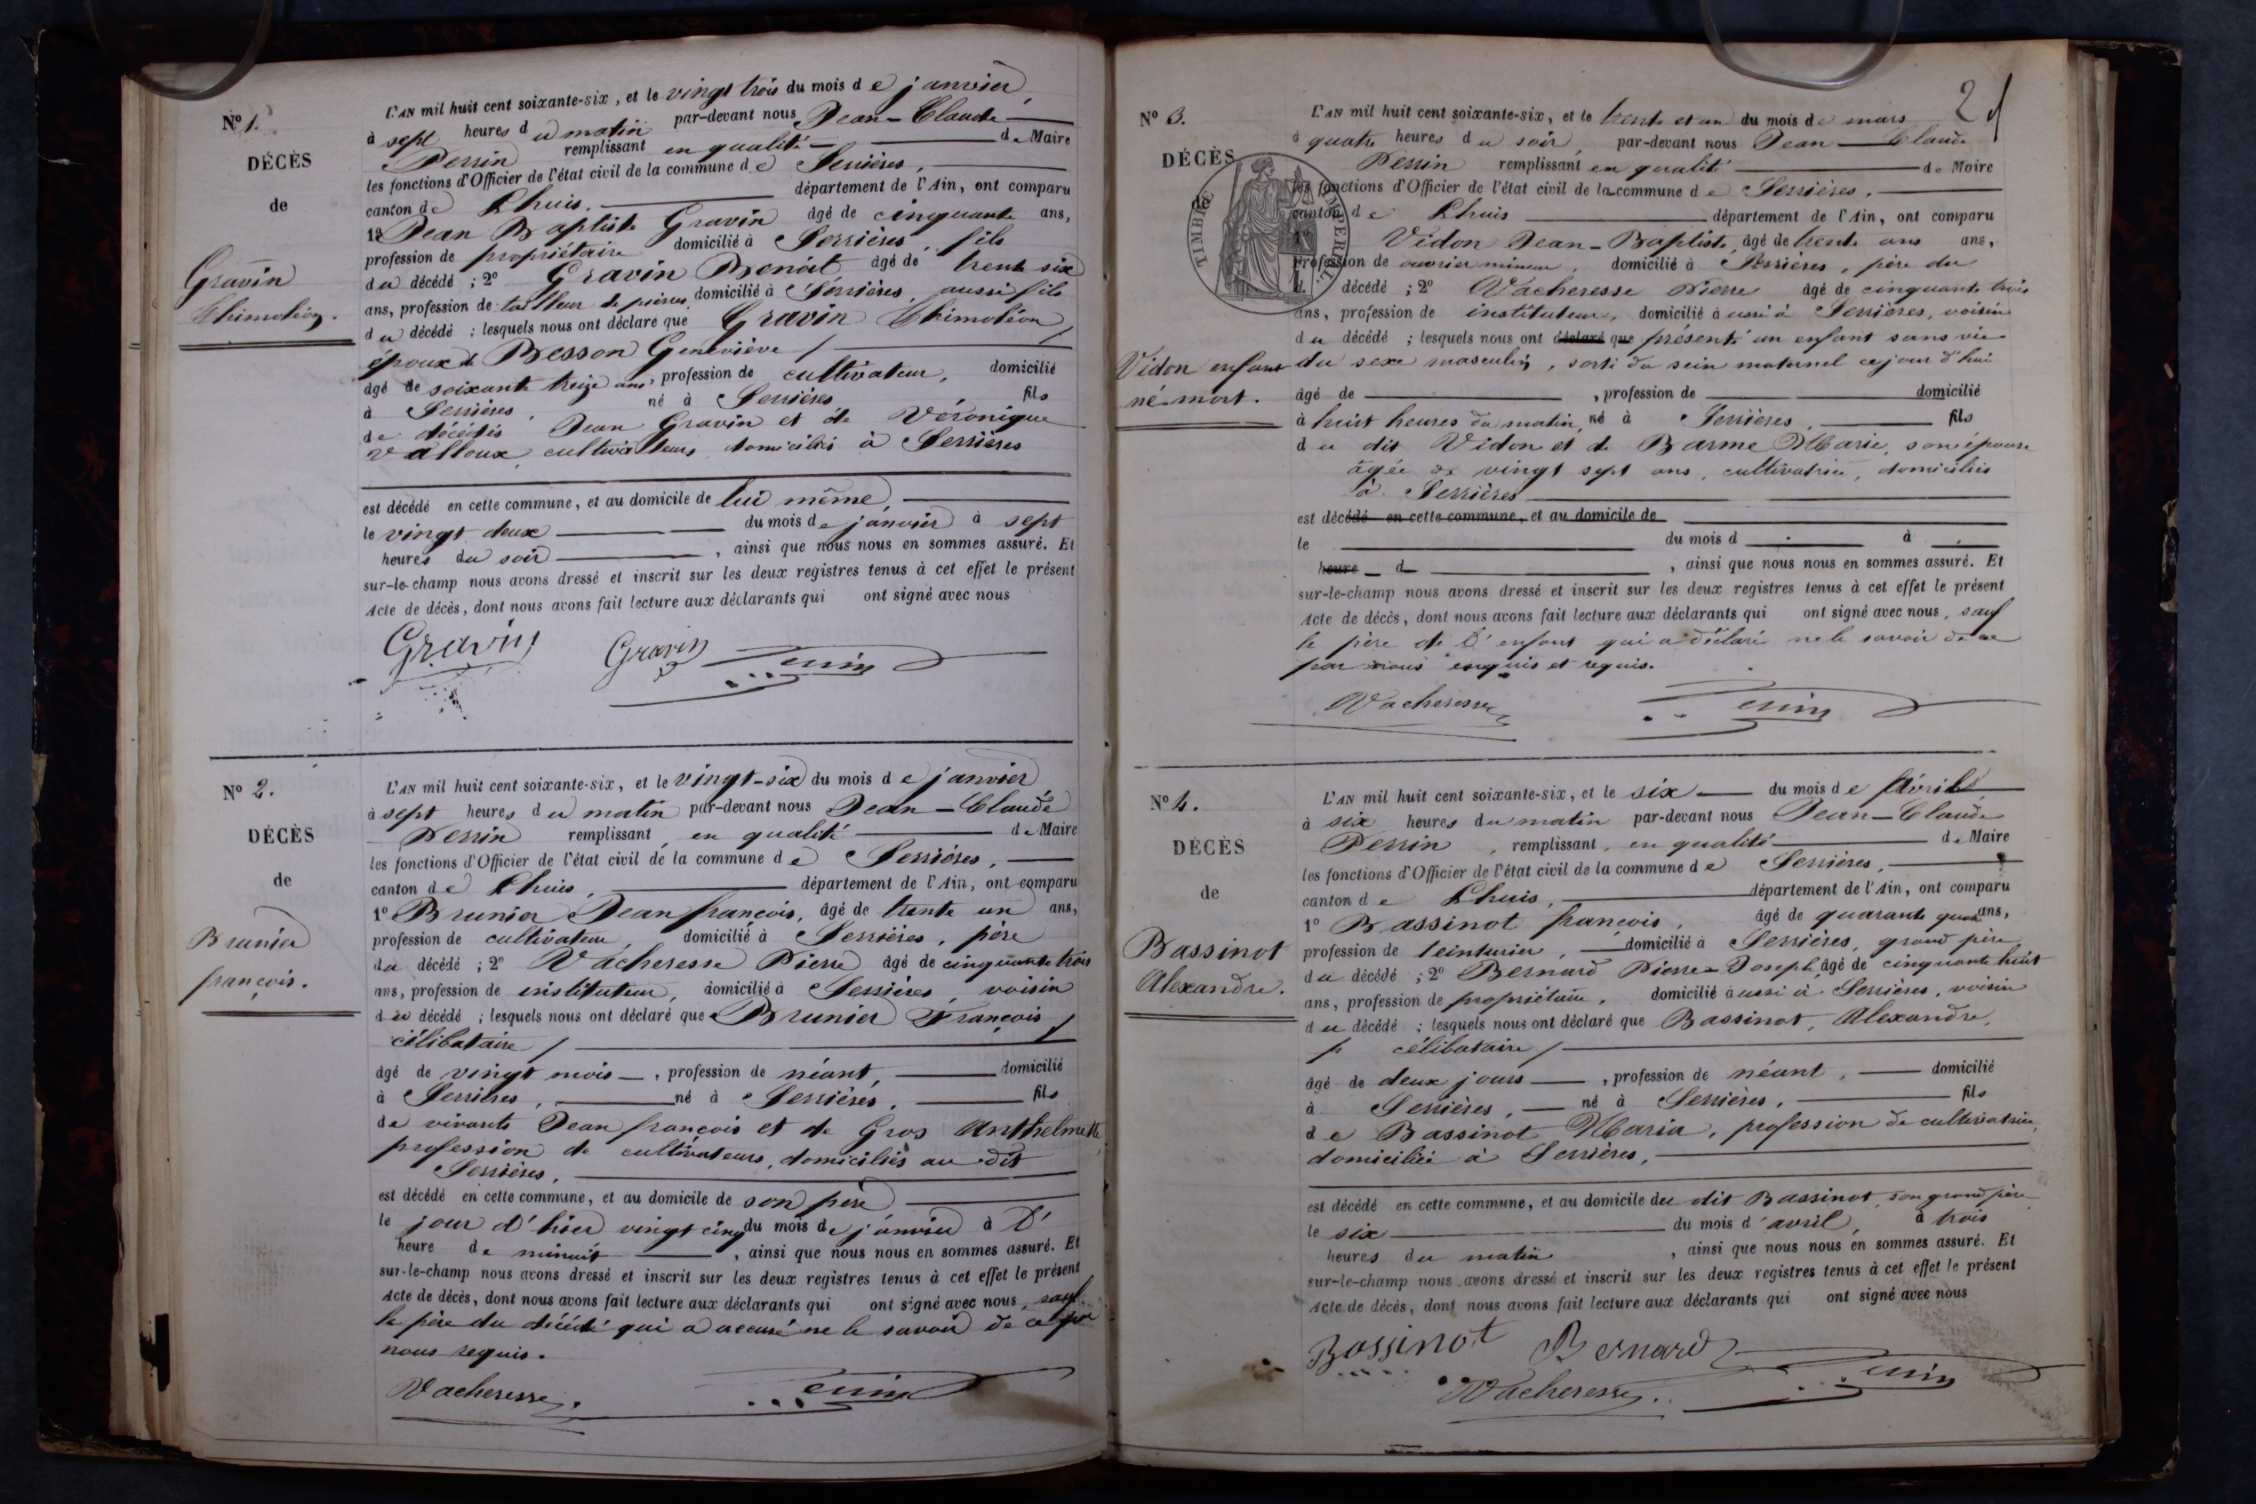 N° 1.
DÉCÈS
de
Gravin
Thimoléon.
L'AN mil huit cent soixante-six, et le vingt trois du mois de janvier,
à sept heures du matin par-devant nous Jean-Claude
Perrin remplissant en qualité de Maire
les fonctions d'Officier de l'état civil de la commune de Serrières,
canton de Lhuis. département de l'Ain, ont comparu
1° Jean Baptiste Gravin âgé de cinquante ans,
profession de propriétaire domicilié à Serrières, fils
du décédé ; 2° Gravin Benoit âgé de trente six
ans, profession de tailleur de pierres domicilié à Serrières, aussi fils
du décédé ; lesquels nous ont déclaré que Gravin Thimoléon
époux de Besson Geneviève /
âgé de soixante treize ans, profession de cultivateur, domicilié
à Serrières, né à Serrières fils
de décédés Jean Gravin et de Véronique
Valloux, cultivateurs, domiciliés à Serrières
est décédé en cette commune, et au domicile de lui même,
le vingt deux du mois de janvier à sept
heures du soir , ainsi que nous nous en sommes assuré. Et
sur-le-champ nous avons dressé et inscrit sur les deux registres tenus à cet effet le présent
Acte de décès, dont nous avons fait lecture aux déclarants qui ont signé avec nous
Gravin Gravin Perrin
N° 2.
DÉCÈS
de
Brunier
françois.
L'AN mil huit cent soixante-six, et le vingt-six du mois de janvier
à sept heures du matin par-devant nous Jean-Claude
Perrin remplissant en qualité de Maire
les fonctions d'Officier de l'état civil de la commune de Serrières,
canton de Lhuis, département de l'Ain, ont comparu
1° Brunier Jean françois, âgé de trente un ans,
profession de cultivateur, domicilié à Serrières, père
du décédé ; 2° Vacheresse Pierre âgé de cinquante trois
ans, profession de instituteur, domicilié à Serrières, voisin
du décédé ; lesquels nous ont déclaré que Brunier François
célibataire /
âgé de vingt mois , profession de néant, domicilié
à Serrières, né à Serrières, fils
de vivants Jean françois et de Gros Anthelmette
profession de cultivateurs, domiciliés au dit
Serrières,
est décédé en cette commune, et au domicile de son père
le jour d'hier vingt cinq du mois de janvier à l'
heure de minuit , ainsi que nous nous en sommes assuré. Et
sur-le-champ nous avons dressé et inscrit sur les deux registres tenus à cet effet le présent
Acte de décès, dont nous avons fait lecture aux déclarants qui ont signé avec nous, sauf
le père du décédé qui a accusé ne le savoir de ce par
nous requis.
Vacheresse Perrin
N° 3.
DÉCÈS
de
TIMBRE IMPERIAL
Vidon enfant
né mort.
L'AN mil huit cent soixante-six, et le trente et un du mois de mars
à quatre heures du soir, par-devant nous Jean-Claude
Perrin remplissant en qualité de Maire
les fonctions d'Officier de l'état civil de la commune de Serrières,
canton de Lhuis département de l'Ain, ont comparu
Vidon Jean-Baptiste, âgé de trente ans ans,
profession de ouvrier mineur, domicilié à Serrières, père du
décédé ; 2° Vacheresse Pierre âgé de cinquante trois
ans, profession de instituteur, domicilié aussi à Serrières, voisin
du décédé ; lesquels nous ont déclaré que présenté un enfant sans vie
du sexe masculin, sorti du sein maternel cejour d'hui
âgé de , profession de domicilié
à huit heures du matin, né à Serrières, fils
du dit Vidon et de Barme Marie, son épouse
agée de vingt sept ans, cultivatrice, domiciliés
à Serrières
est décédé en cette commune, et au domicile de
le du mois d à
heure d , ainsi que nous nous en sommes assuré. Et
sur-le-champ nous avons dressé et inscrit sur les deux registres tenus à cet effet le présent
Acte de décès, dont nous avons fait lecture aux déclarants qui ont signé avec nous, sauf
le père de l'enfant qui a déclaré ne le savoir de ce
par nous enquis et requis.
Vacheresse Perrin
N° 4.
DÉCÈS
de
Bassinot
Alexandre.
L'AN mil huit cent soixante-six, et le six du mois de
à six heures du matin par-devant nous Jean-Claude
Perrin, remplissant, en qualité de Maire
les fonctions d'Officier de l'état civil de la commune de Serrières,
canton de Lhuis, département de l'Ain, ont comparu
1° Bassinot françois, âgé de quarante ans,
profession de teinturier, domicilié à Serrières, grand père
du décédé ; 2° Bernard Pierre-Joseph, âgé de cinquante huit
ans, profession de propriétaire, domicilié aussi à Serrières, voisin
du décédé ; lesquels nous ont déclaré que Bassinot, Alexandre,
célibataire /
âgé de deux jours , profession de néant, domicilié
à Serrières, né à Serrières, fils
de Bassinot Maria, profession de cultivatrice,
domiciliée à Serrières,
est décédé en cette commune, et au domicile du dit Bassinot, son grand père
le six du mois d'avril, à trois
heures du matin , ainsi que nous nous en sommes assuré. Et
sur-le-champ nous avons dressé et inscrit sur les deux registres tenus à cet effet le présent
Acte de décès, dont nous avons fait lecture aux déclarants qui ont signé avec nous
Bassinot Bernard Perrin
Vacheresse